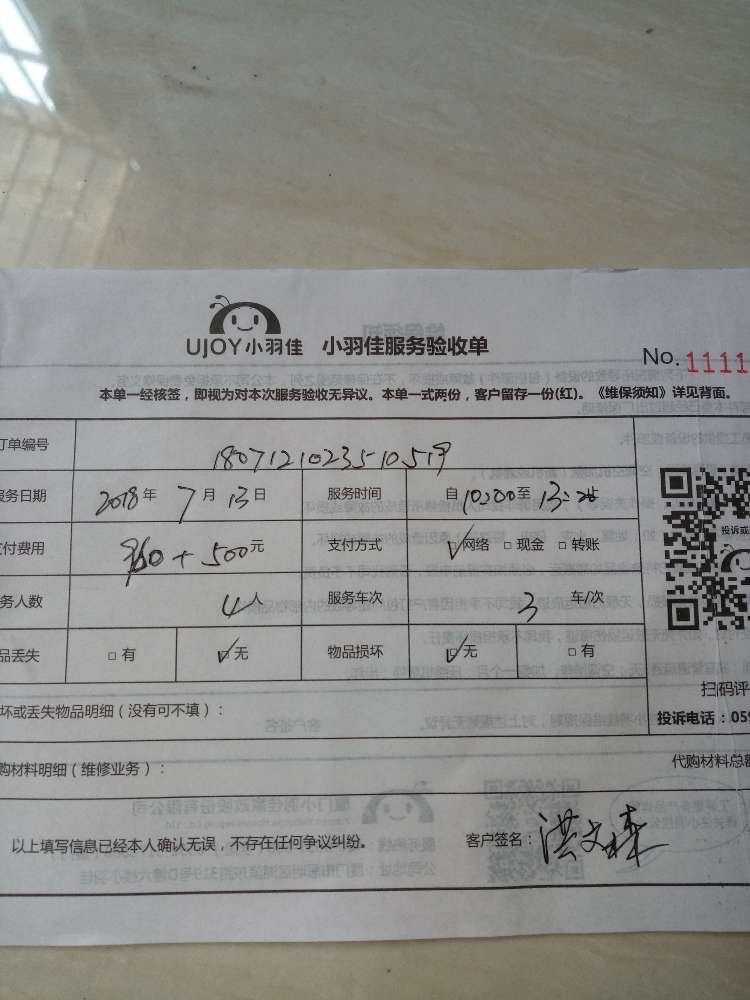 UJOY小羽佳 小羽佳服务验收单
No. 1111
本单一经核签，即视为对本次服务验收无异议。本单一式两份，客户留存一份(红)。《维保须知》详见背面。
订单编号 180712102351051
服务日期 2018年 7月 13日 服务时间 自 10:00至 13:
付费用 + 500元 支付方式 ☑网络 □现金 □转账
务人数 4人 服务车次 3 车/次
品丢失 □有 ☑无 物品损坏 ☑无 □有
投诉或
扫码评
坏或丢失物品明细（没有可不填）：
投诉电话：059
购材料明细（维修业务）：
代购材料总额
以上填写信息已经本人确认无误，不存在任何争议纠纷。 客户签名：洪文森